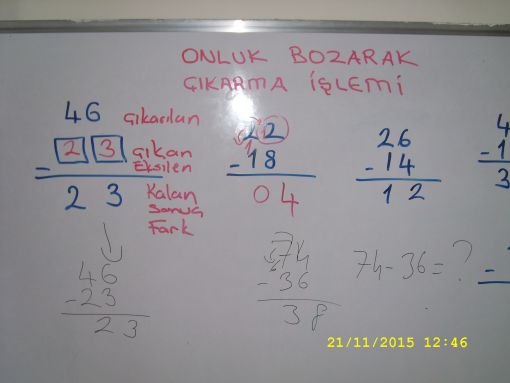 ONLUK BOZARAK
ÇIKARMA İŞLEMİ
46 Çıkarılan
23 Çıkan
Eksilen
-
23 Kalan
Sonuç
Fark
22
-18
04
26
-14
12
4
-1
3
46
-23
23
74
-36
38
74-36=?
-
21/11/2015 12:46